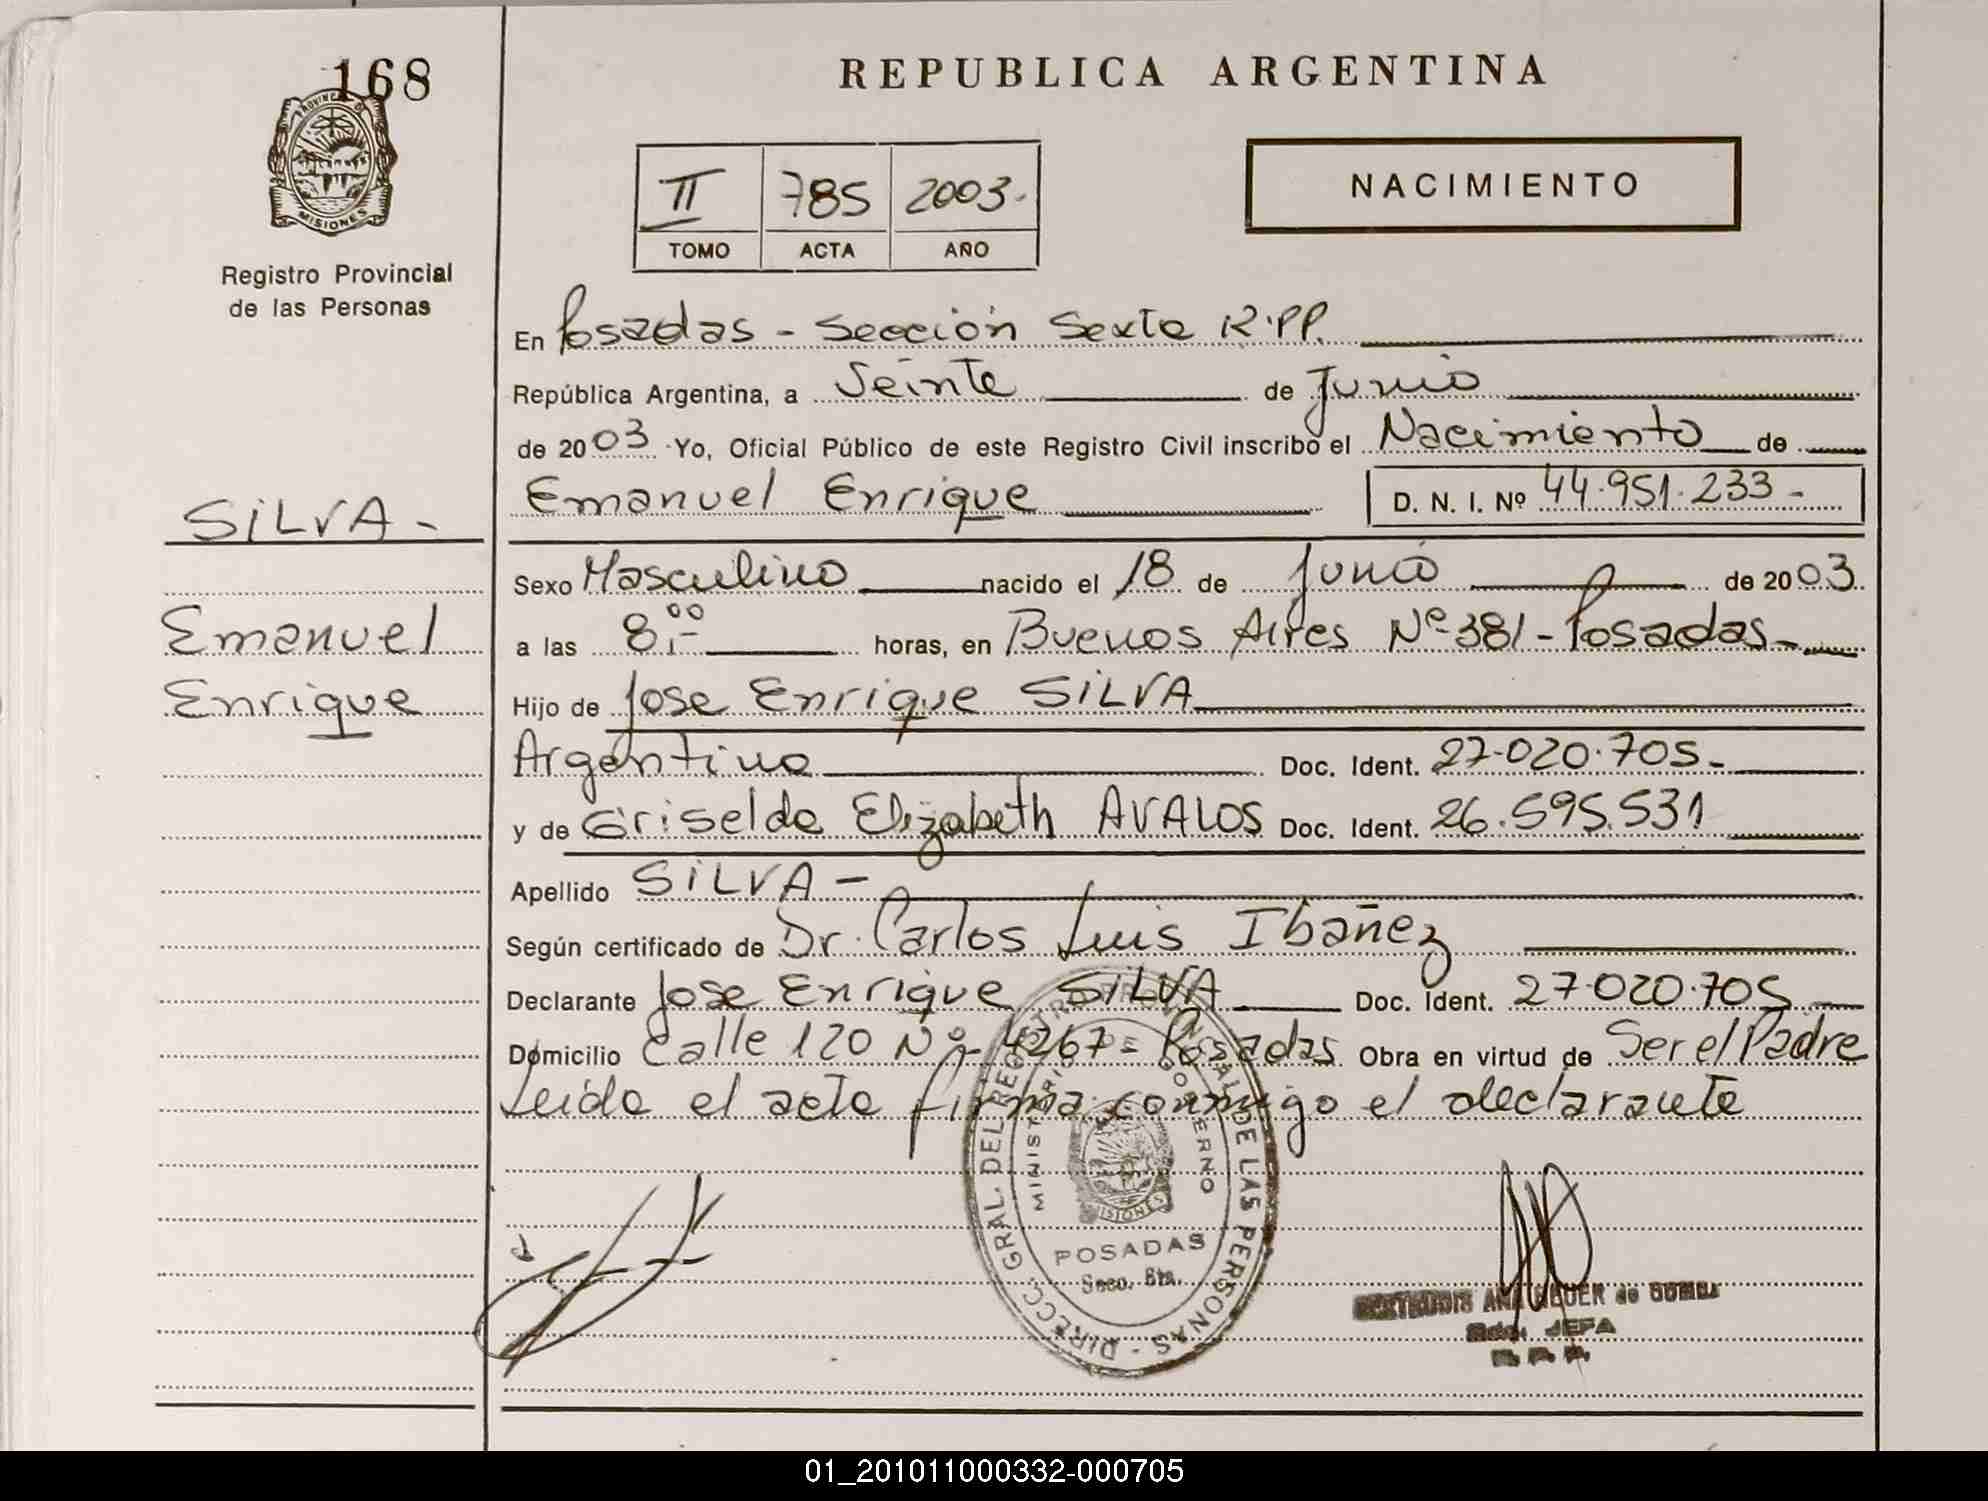 168
PROVINCIA DE
MISIONES
Registro Provincial
de las Personas
REPUBLICA ARGENTINA
II 785 2003.
TOMO ACTA AÑO
NACIMIENTO
En Posadas - Sección Sexta R.PP.
República Argentina, a Veinte de Junio
de 2003 Yo, Oficial Público de este Registro Civil inscribo el Nacimiento de
Emanuel Enrique D. N. I. Nº 44.951.233-
SILVA-
Emanuel
Enrique
Sexo Masculino nacido el 18 de Junio de 2003.
a las 8,00- horas, en Buenos Aires Nº 381- Posadas-
Hijo de Jose Enrique SILVA
Argentino Doc. Ident. 27.020.705-
y de Griselda Elizabeth AVALOS Doc. Ident. 26.595.531
Apellido SILVA-
Según certificado de Dr. Carlos Luis Ibañez
Declarante Jose Enrique SILVA Doc. Ident. 27.020.705
Domicilio Calle 120 Nº 4267- Posadas Obra en virtud de Ser el Padre
Leida el acta firma conmigo el declarante
DIRECC. GRAL. DEL REGISTRO PROVINCIAL DE LAS PERSONAS -
MINISTERIO DE GOBIERNO
MISIONES
POSADAS
Secc. 6ta.
GERTRUDIS ANA
JEFA
R. P. P.
01_201011000332-000705